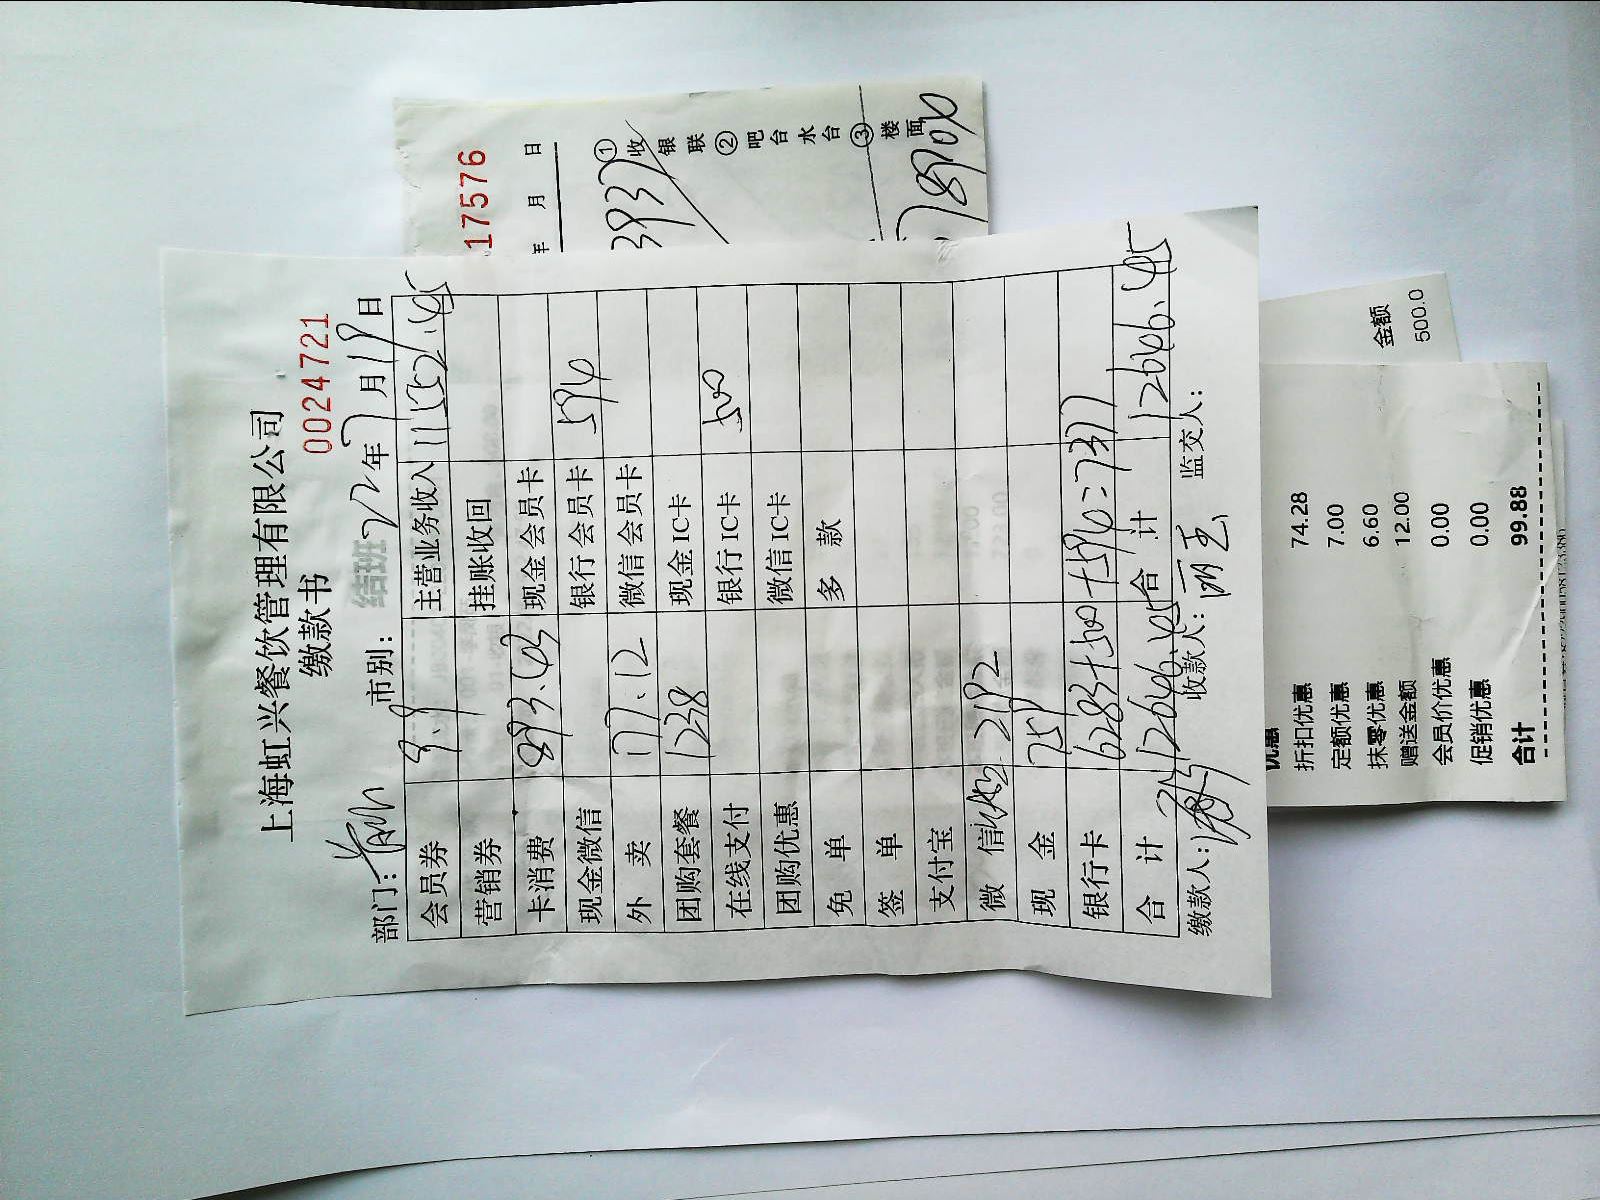 上海虹兴餐饮管理有限公司
缴款书
0024721
部门: 市别: 结班 22年7月18日
会员券 9.9 主营业务收入 11552.45
营销券 挂账收回
卡消费 893.43 现金会员卡
现金微信 银行会员卡 594
外卖 177.12 微信会员卡
团购套餐 1238 现金IC卡
在线支付 银行IC卡 500
团购优惠 微信IC卡
免单 多款
签单
支付宝
微信 2192
现金 759
银行卡 6283+500+594=7377
合计 12646.45 合计 12646.45
缴款人: 收款人: 监交人:
17576
年 月 日
393
①收银联②吧台水台③楼面
金额
500.0
优惠
折扣优惠 74.28
定额优惠 7.00
抹零优惠 6.60
赠送金额 12.00
会员价优惠 0.00
促销优惠 0.00
合计 99.88